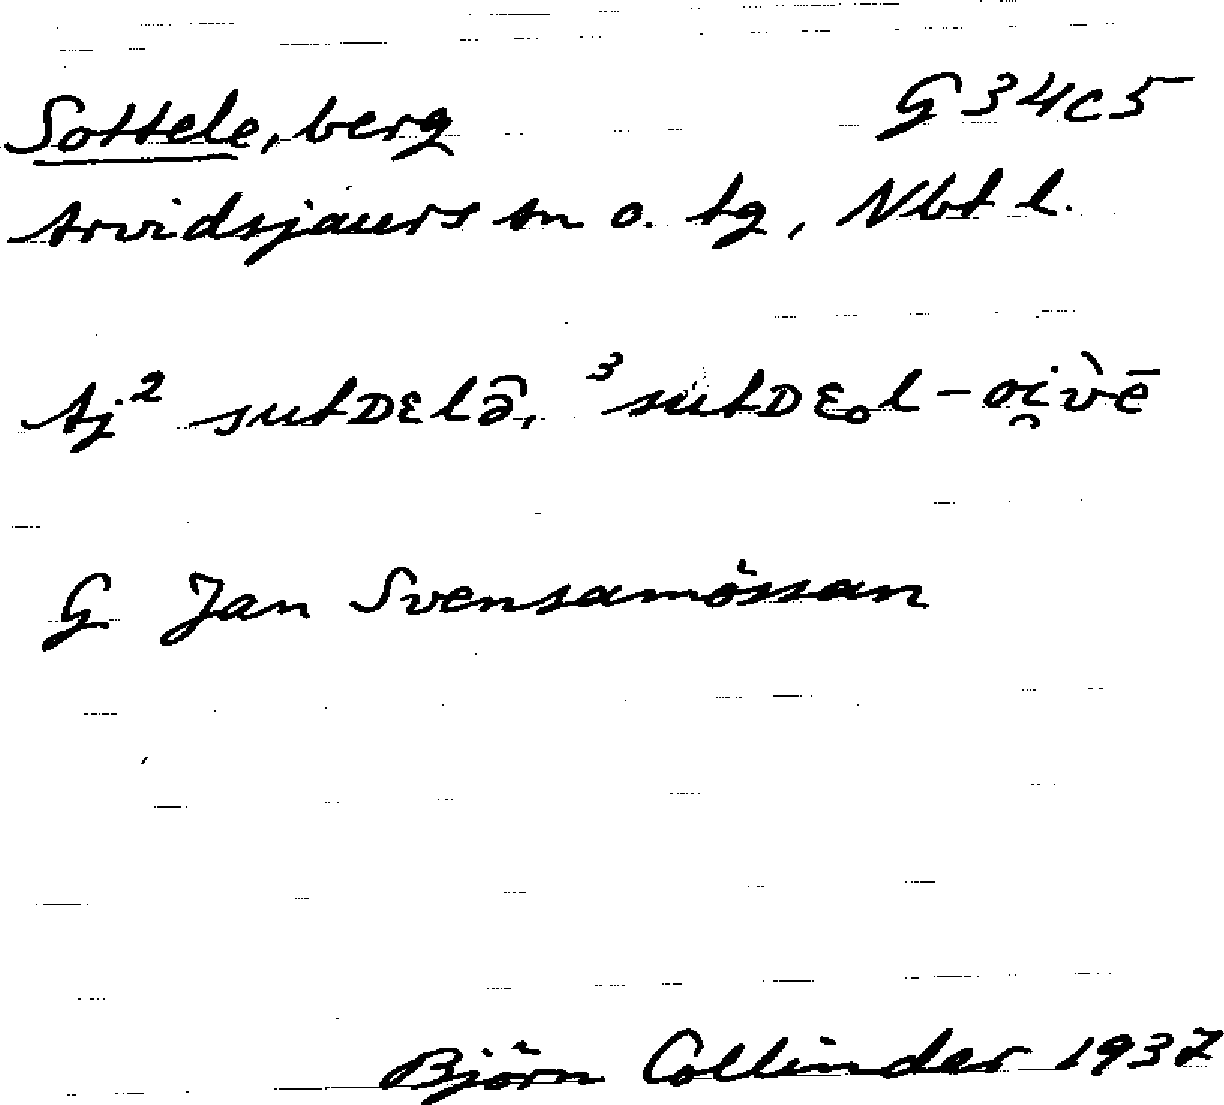 Sottele, berg G 34c5
Arvidsjaurs sn o. tg, Nbt l.
Aj² sutDεlə̄, ³sutDε̥l-oi̯v̀ē
G Jan Svensamössan
Björn Collinder 1937